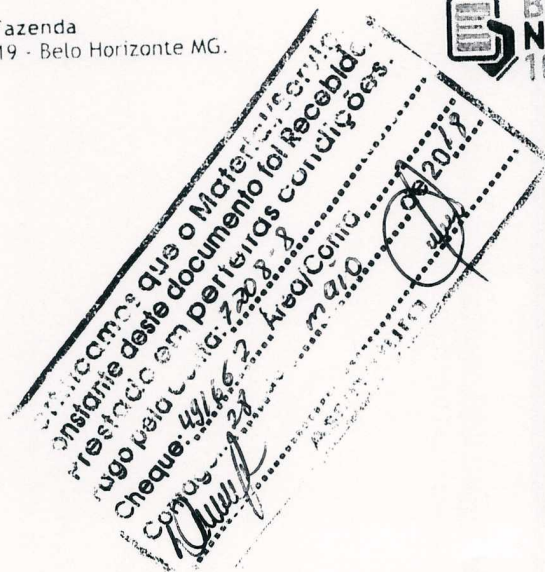 azenda
19 - Belo Horizonte MG.
B
N
10
que o Material/Serviço
onstante deste documento foi Recebido
Prestado em perfeitas condições.
ago pela Conta: 7208-8
Cheque: 491662 Área/Conta
28 maio de 2018